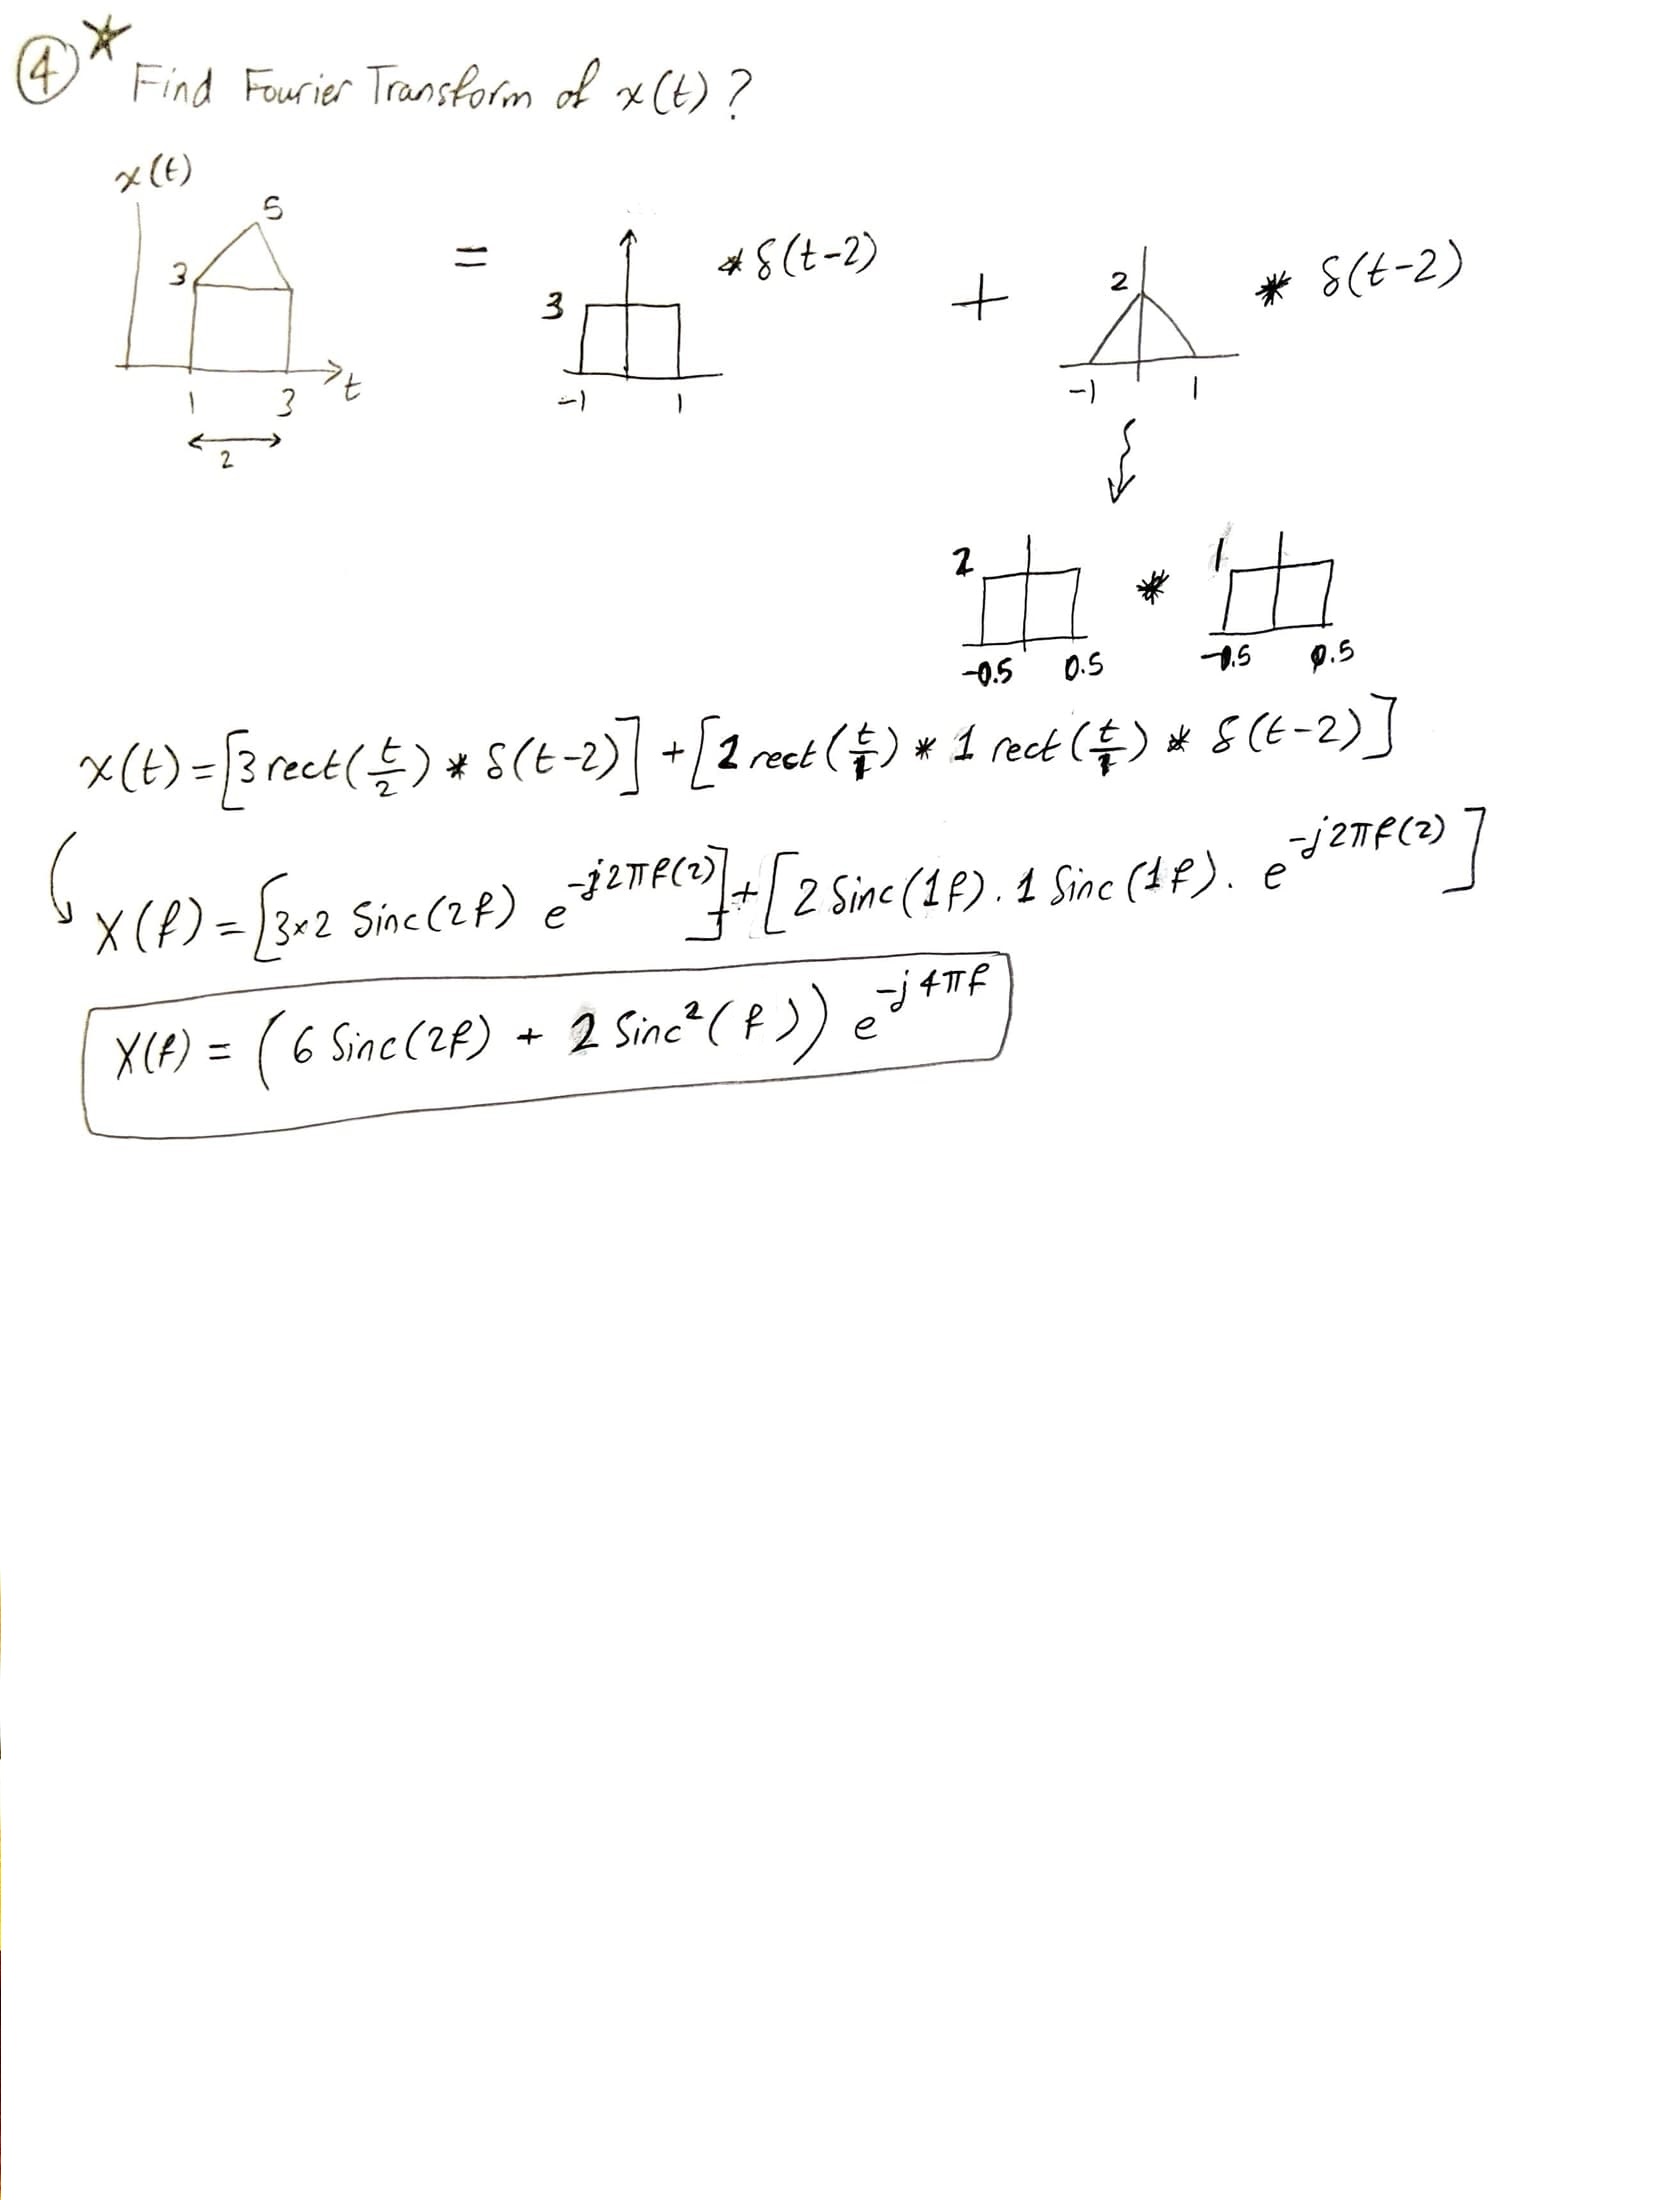 ④* Find Fourier Transform of x(t)?
x(t)
5
3
1 3 t
2
=
3
-1 1
* δ(t-2)
+
2
-1 1
* δ(t-2)
2
-0.5 0.5
*
1
-0.5 0.5
x(t) = [3 rect(t/2) * δ(t-2)] + [2 rect(t/1) * 1 rect(t/1) * δ(t-2)]
X(f) = [3×2 Sinc(2f) e^{-j2πf(2)}] + [2 Sinc(1f) . 1 Sinc(1f) . e^{-j2πf(2)}]
X(f) = (6 Sinc(2f) + 2 Sinc²(f)) e^{-j4πf}